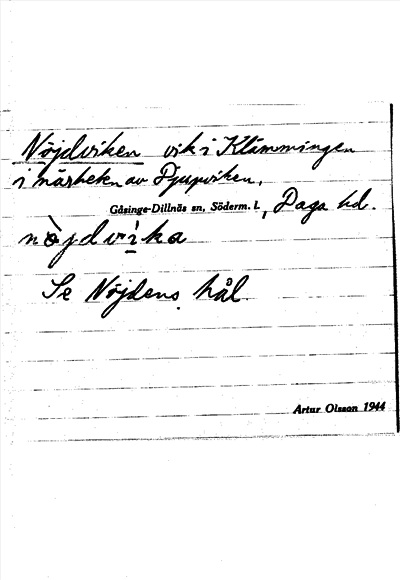 Nöjdviken vik i Klämmingen
i närheten av Djupviken.
Gåsinge-Dillnäs sn, Söderm. l., Daga hd.
nö̀jdvika
Se Nöjdens hål.
Artur Olsson 1944